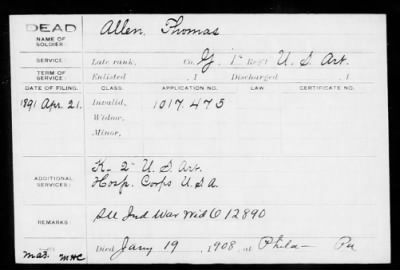 DEAD
NAME OF SOLDIER:
Allen, Thomas
SERVICE:
Late rank, Co. G, 1" Reg't U. S. Art.
TERM OF SERVICE:
Enlisted , 1 Discharged , 1
DATE OF FILING. CLASS. APPLICATION NO. LAW. CERTIFICATE NO.
1891 Apr. 21. Invalid, 1017.475
Widow,
Minor,
ADDITIONAL SERVICES:
K- 2" U. S. Art.
Hosp. Corps U.S.A.
REMARKS:
Ind War Wid O 12890
Died Jany 19, 1908, at Phila- Pa